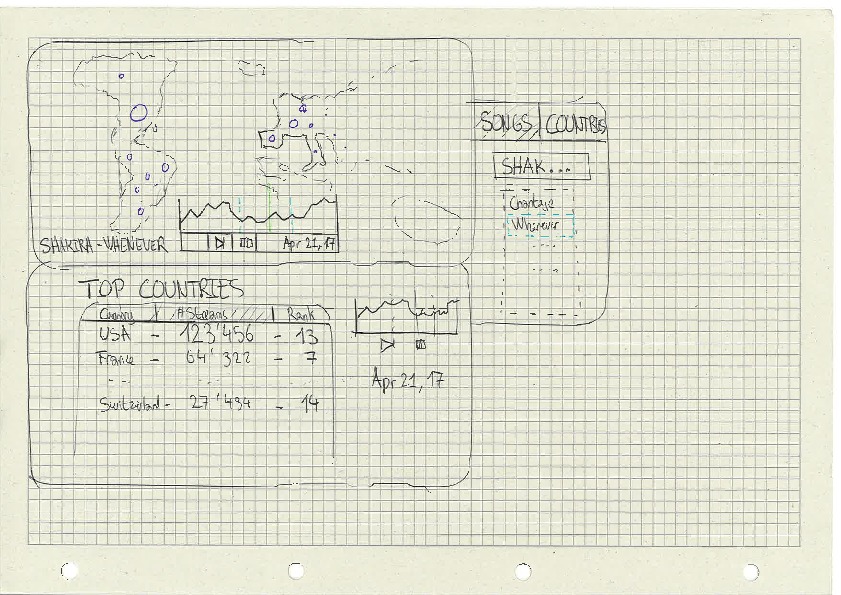 SHAKIRA - WHENEVER
Apr 21, 17
SONGS COUNTRIES
SHAK...
Chantaje
Whenever
TOP COUNTRIES
Country #Streams Rank
USA - 123'456 - 13
France - 64'322 - 7
Switzerland - 27'494 - 14
Apr 21, 17